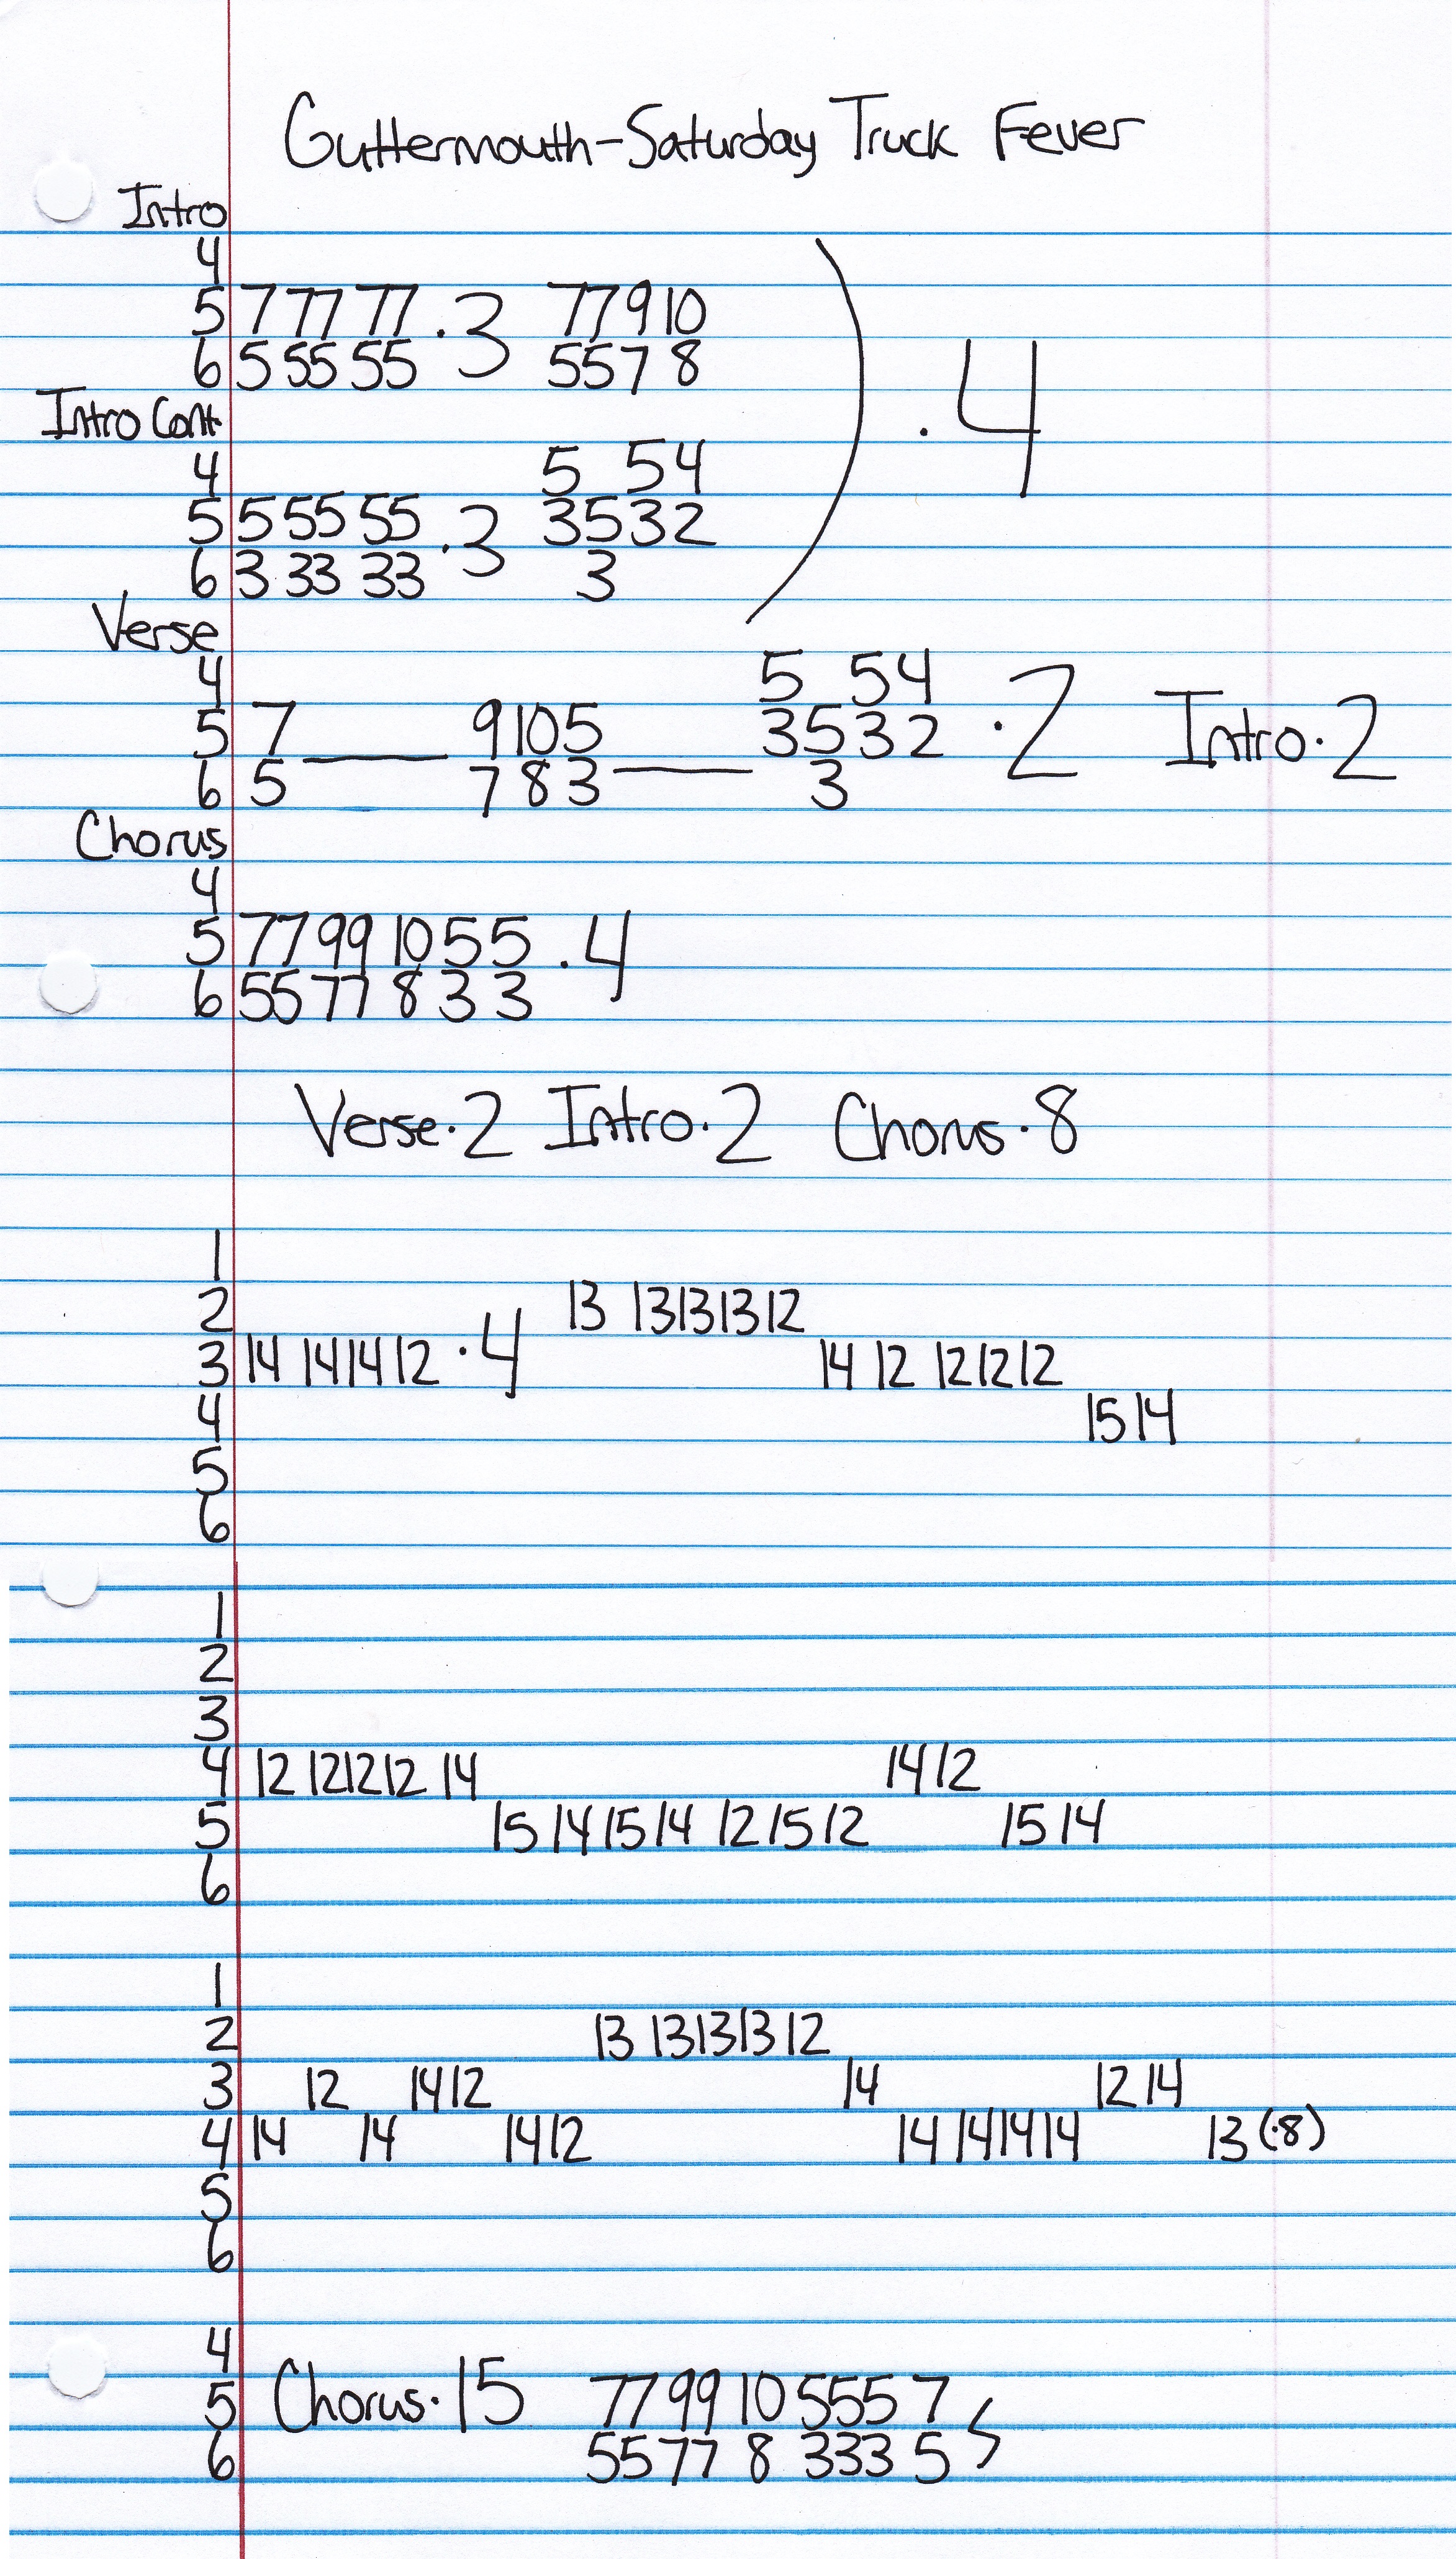 Guttermouth-Saturday Truck Fever
Intro
4
5 7 77 77 .3 77910
6 5 55 55 557 8
.4
Intro Cont.
4 5 54
5 5 55 55 .3 3532
6 3 33 33 3
Verse
4 5 54
5 7 9105 3532 .2 Intro.2
6 5 7 8 3 3
Chorus
4
5 7799 1055 .4
6 5577 8 3 3
Verse.2 Intro.2 Chorus.8
1
2 13 13131312
3 14 141412 .4 14 12 121212
4 1514
5
6
1
2
3
4 12 121212 14 1412
5 15 141514 121512 1514
6
1
2 13 13131312
3 12 1412 14 1214
4 14 14 1412 14 141414 13 (.8)
5
6
4
5 Chorus.15 7799 10 555 7
6 5577 8 333 5